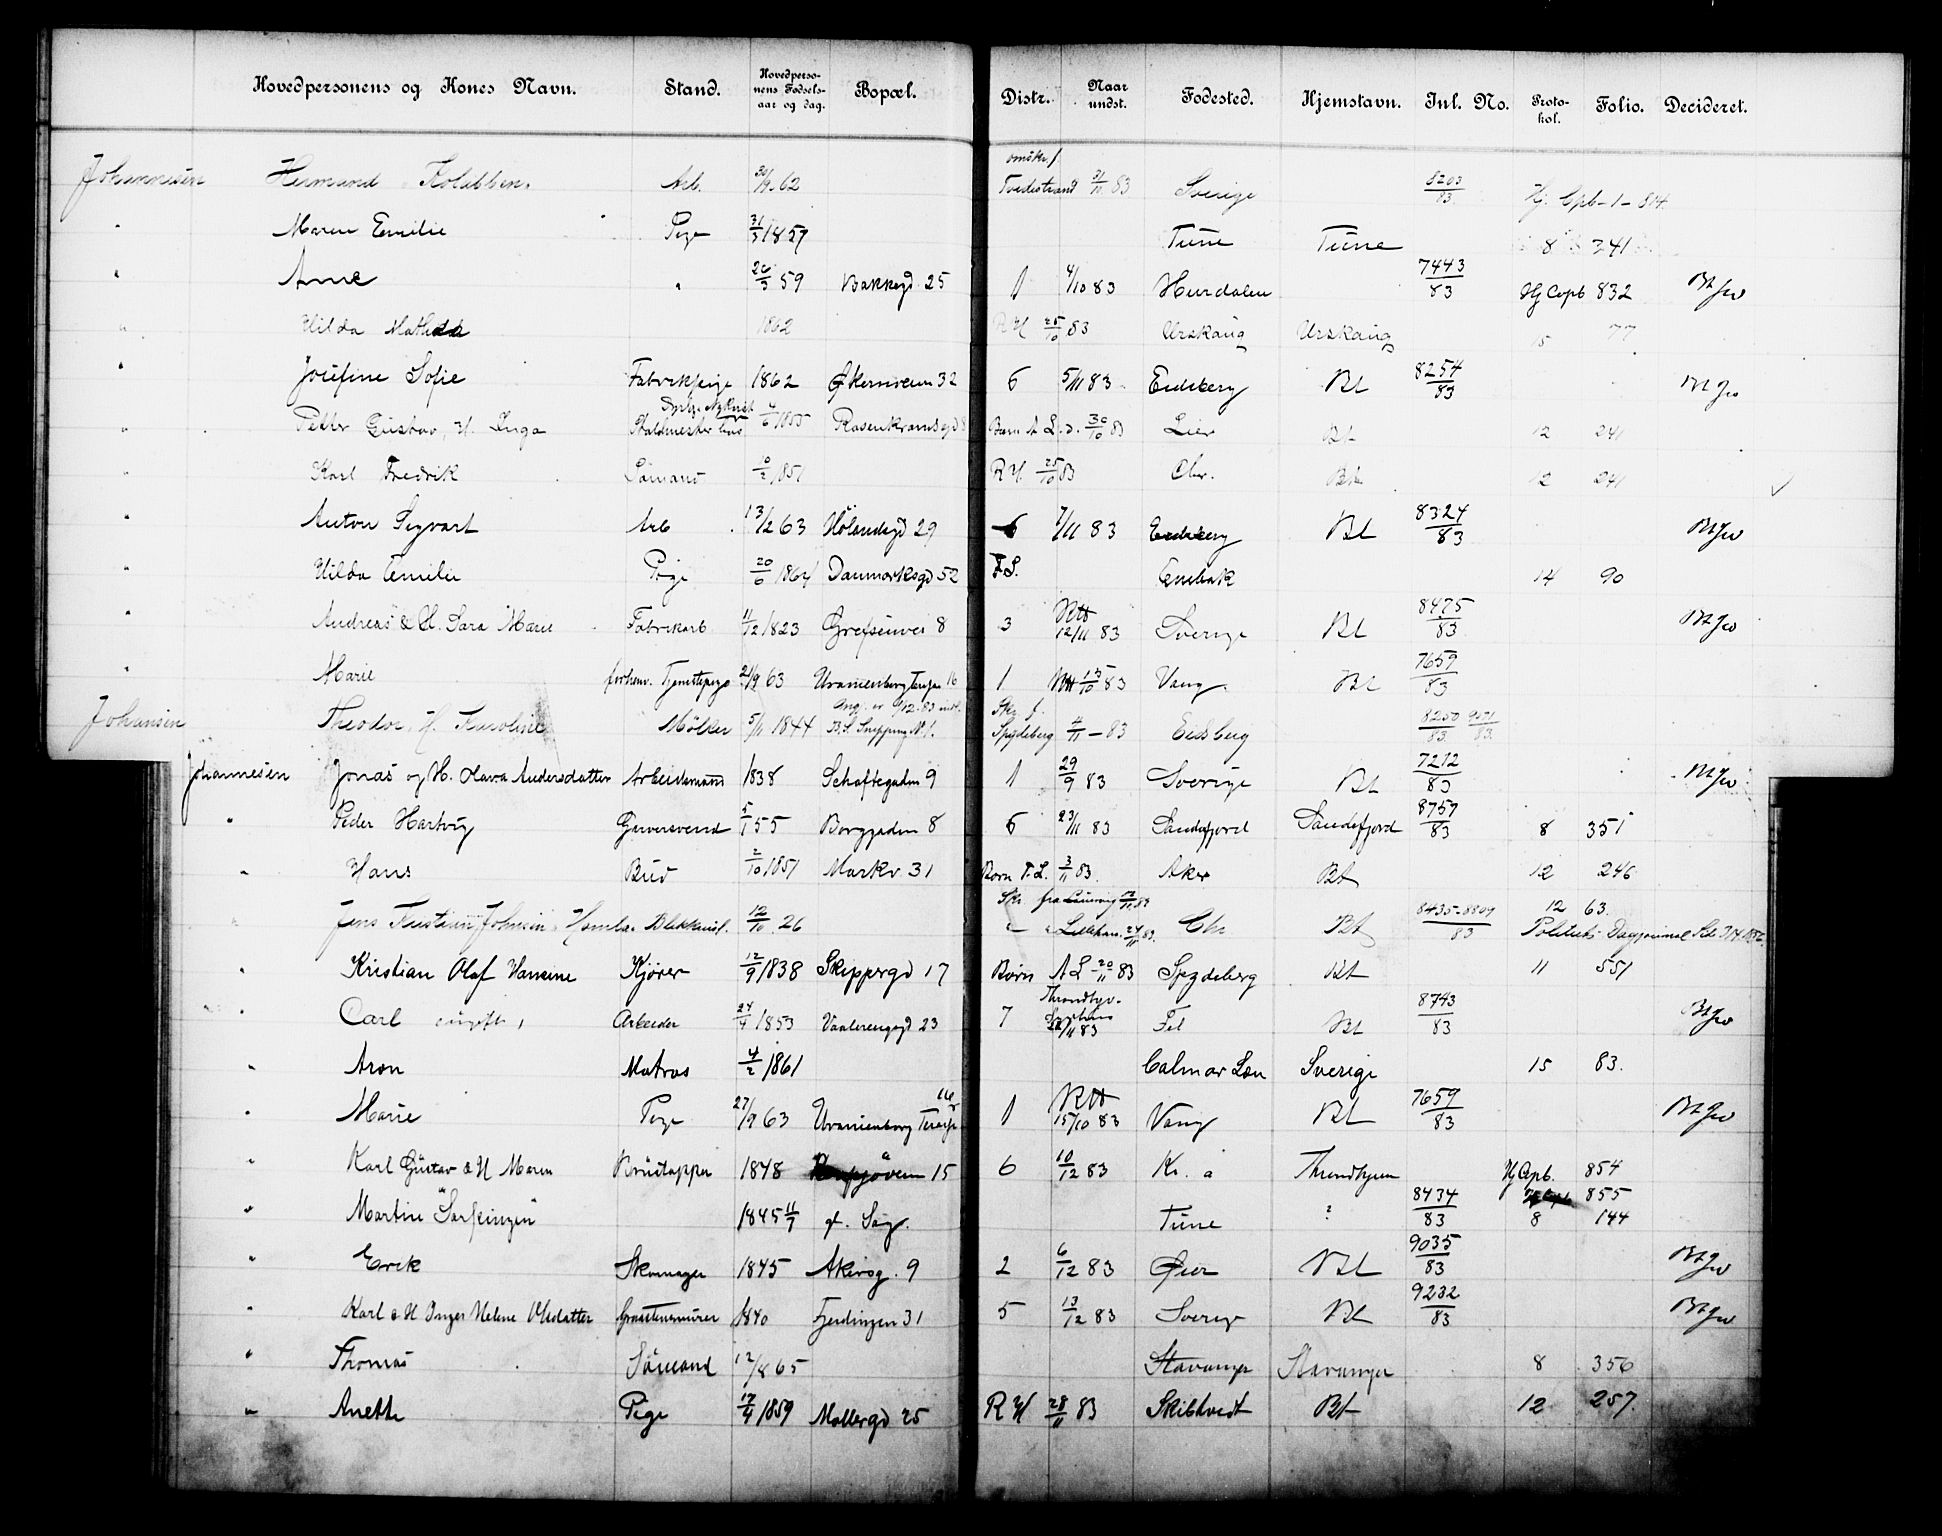 Hovedpersonens og Kones Navn. Stand. Hovedperso-nens Fødsels-aar og dag. Bopæl. Distr. Naar undst. Fødested. Hjemstavn. Inl. No. Proto-kol. Folio. Decideret.
Johannesen Hermand Arb. 30/9 62 omskr. f. Tvedestrand 31/11 83 Sverige 8203/83 Hj. Cpb-1-814.
" Maren Emilie Pige 31/3 1857 Tune Tune 8 341
" Arne " 26/3 59 Bakkegd 25 1 4/10 83 Hurdalen 7443/83 Hj Copb 832
" Hilda Mathilda 1862 R H 25/10 83 Urskaug Urskaug 15 77
" Josefine Sofie Fabrikpige 1862 Økernveien 32 6 5/11 83 Eidsberg Bt 8254/83
" Petter Gustav, H. Inga Staldmester 4/6 1855 Rosenkrandsgd 8 Barn A L. d. 30/10 83 Lier Bt 12 241
" Karl Fredrik Sömand 10/2 1851 R H 25/10 83 Chr. Bt 12 241
" Anton Sigvart Arb 13/12 63 Hölandsgd 29 6 7/11 83 Eidsberg Bt 8324/83
" Hilda Emilie Pige 20/6 1864 Danmarksgd 52 F.L. Enebak 14 90
" Andreas & H. Sara Marie Fabrikarb 11/12 1823 Grefsenvei 8 3 12/11 83 Sverige Bt 8475/83
" Marie forhenv. Tjenestepige 27/9 63 Uranienborg Terasse 16 1 15/10 83 Vang. Bt 7659/83
Johansen Theodor, H. Karoline Möller 5/11 1844 Skr. f. Spydeberg 4/11-83 Eidsberg 8250/83 9071/83
Johannesen Jonas og H. Olava Andersdatter Arbeidsmand 1838 Schaftegaden 9 1 29/9 83 Sverige Bt 7212/83
" Peder Hartvig Garversvend 5/1 55 Borggaden 8 6 23/11 83 Sandefjord Sandefjord 8757/83 8 351
" Hans Bud 2/10 1851 Markv. 31 Barn F.L. 3/11 83. Aker Bt 12 246
" Jens Kristian Johnsen Blikkensl. 12/10 26 Skr. fra Laurvig 12/11 83 Lilleham. 24/11 83. Chr Bt 8435-8809/83 12 63.
" Kristian Olaf Hansine Kjörer 12/9 1838 Skippergd 17 Barn A L 20/11 83 Spydeberg Bt 11 551
" Carl ugift, Arbeider 24/4 1853 Vaalerenggd 23 7 83 Fet Bt 8743/83
" Aron Matros 4/2 1861 Calmar Len Sverige 15 83.
" Marie Pige 27/9 63 Uranienborg Terasse 16 1 15/10 83 Vang Bt 7659/83
" Karl Gustav & H Maren Brustapper 1848 15 6 10/12 83 Kr. a Throndhjem Hj Cpb. 854
855
" Martin "Sarpingen" 1845 11/7 gl. Sag. Tune ? 8434/83 8 144
" Erik Skomager 1845 Akersg. 9 2 6/12 83 Øier Bt 9035/83
" Karl & H Inger Helene Olsdatter Graastensmurer 1840 Fjerdingen 31 5 13/12 83 Sverig Bt 9232/83
" Thomas Sömand 12/8 65 Stavanger Stavanger 8 356
" Anette Pige 17/4 1859 Möllergd 25 R H 28/11 83 Skibtvedt Bt 12 257.